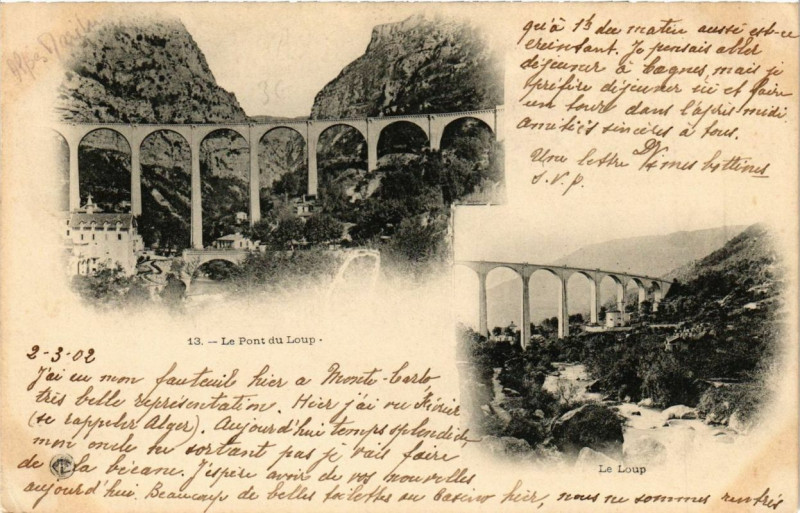 2-3-02
J'ai eu mon fauteuil hier a Monte-Carlo
très belle représentation. Hier j'ai vu
(se rappeler Alger). Aujourd'hui temps splendide
mon oncle ne sortant pas je vais faire
de la bécane. J'espère avoir de vos nouvelles
aujourd'hui. Beaucoup de belles toilettes au Casino hier, nous ne sommes rentrés
qu'à 1h du matin aussi est-ce
éreintant. Je pensais aller
déjeuner à Cagnes, mais je
préfère déjeuner ici et faire
un tour dans l'après midi.
Amitiés sincères à tous.
Une lettre mes bottines
S.V.P.
13. — Le Pont du Loup.
Le Loup